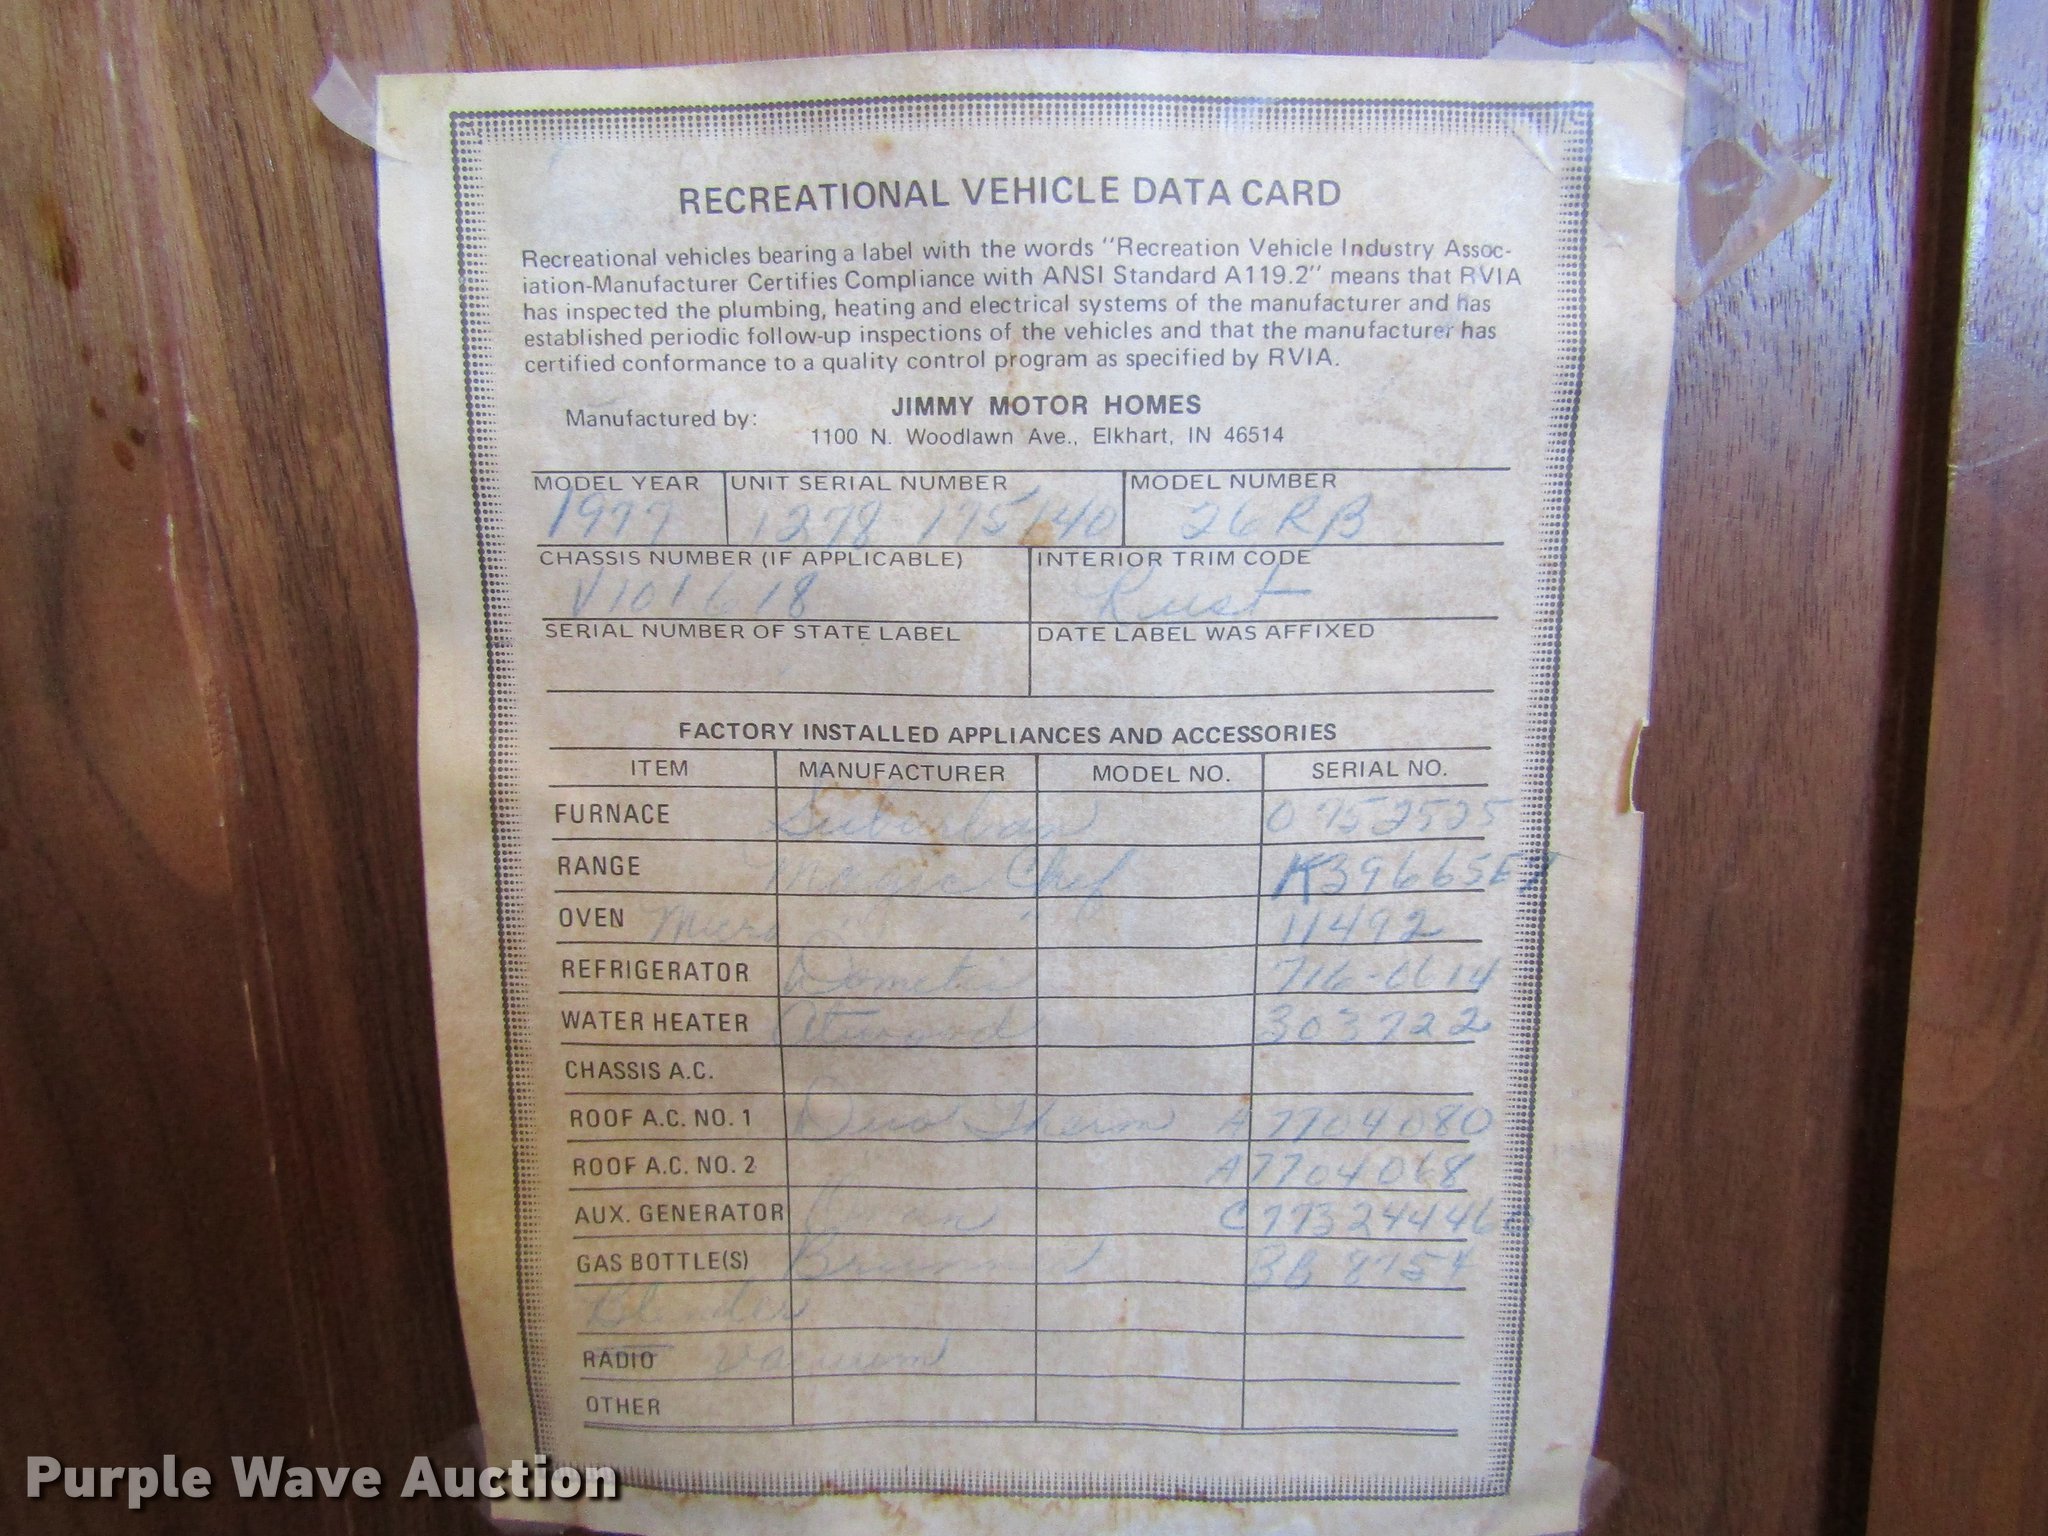 RECREATIONAL VEHICLE DATA CARD
Recreational vehicles bearing a label with the words "Recreation Vehicle Industry Assoc-
iation-Manufacturer Certifies Compliance with ANSI Standard A119.2" means that RVIA
has inspected the plumbing, heating and electrical systems of the manufacturer and has
established periodic follow-up inspections of the vehicles and that the manufacturer has
certified conformance to a quality control program as specified by RVIA.
JIMMY MOTOR HOMES
Manufactured by:
1100 N. Woodlawn Ave., Elkhart, IN 46514
MODEL YEAR UNIT SERIAL NUMBER MODEL NUMBER
1977 1278 175140 26RB
CHASSIS NUMBER (IF APPLICABLE) INTERIOR TRIM CODE
V101618 Rust
SERIAL NUMBER OF STATE LABEL DATE LABEL WAS AFFIXED
FACTORY INSTALLED APPLIANCES AND ACCESSORIES
ITEM MANUFACTURER MODEL NO. SERIAL NO.
FURNACE Suburban 0752525
RANGE Magic Chef
OVEN Micro " 11492
REFRIGERATOR Dometic
WATER HEATER Atwood 303722
CHASSIS A.C.
ROOF A.C. NO. 1 Duo Therm A7704080
ROOF A.C. NO. 2 A7704068
AUX. GENERATOR Onan
GAS BOTTLE(S)
Blender
RADIO vacuum
OTHER
Purple Wave Auction